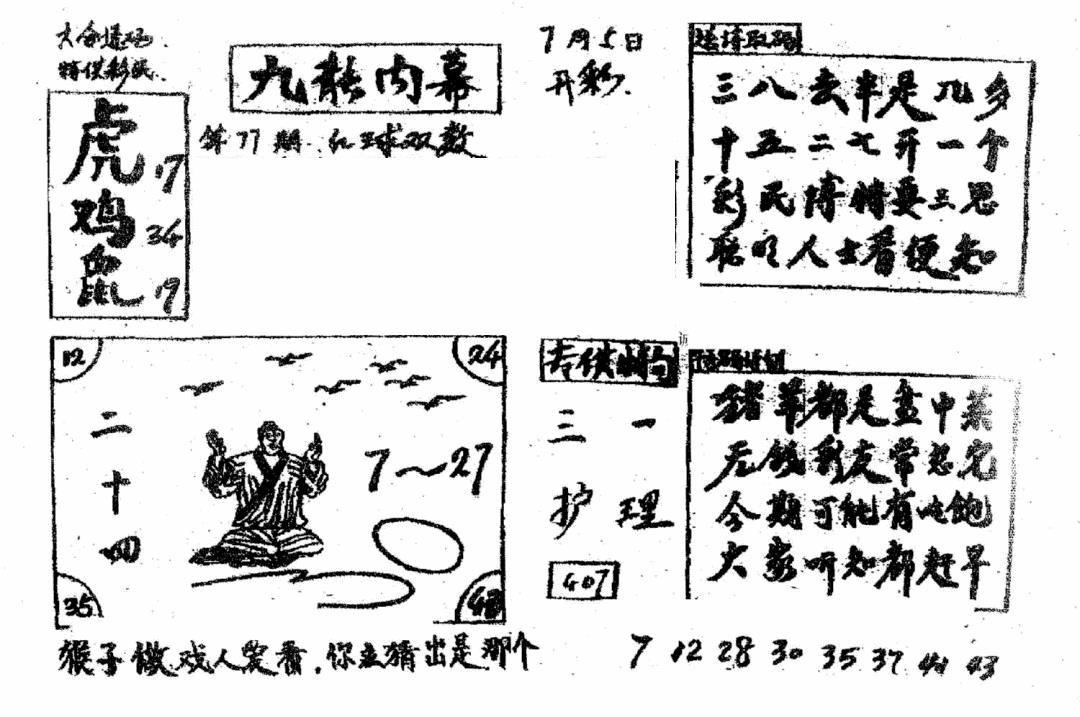 特供彩民
九龙内幕
7月5日
开彩
第77期 红球双数
虎 17
鸡 34
鼠 19
三八去半是几多
十五二七开一个
彩民博特要三思
聪明人士看便知
12
24
二十四
7~27
35
专供特句
三一
护理
407
猪羊都是盘中菜
无钱彩友常忍完
今期可能有吃饱
大家听知都赶早
猴子做戏人家看,你去猜出是那个
7 12 28 30 35 37 41 43